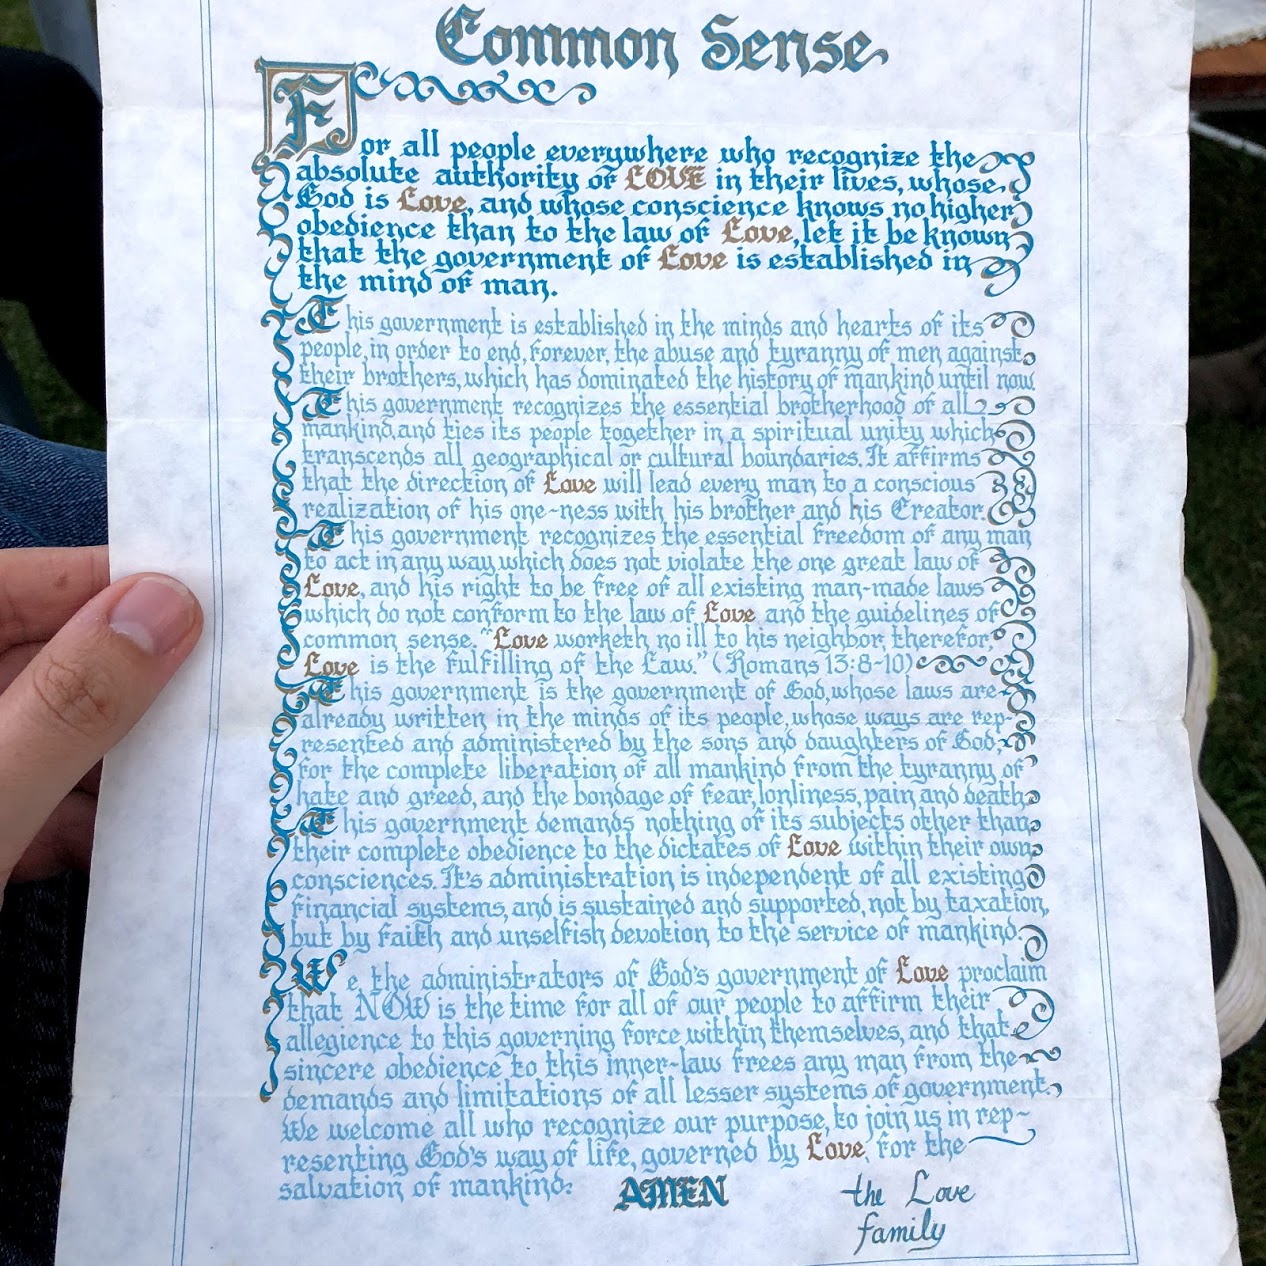 Common Sense
For all people everywhere who recognize the
absolute authority of LOVE in their lives, whose
God is Love, and whose conscience knows no higher
obedience than to the law of Love, let it be known
that the government of Love is established in
the mind of man.
This government is established in the minds and hearts of its
people, in order to end, forever, the abuse and tyranny of men against
their brothers, which has dominated the history of mankind until now
This government recognizes the essential brotherhood of all
mankind, and ties its people together in a spiritual unity which
transcends all geographical or cultural boundaries. It affirms
that the direction of Love will lead every man to a conscious
realization of his one-ness with his brother and his Creator.
This government recognizes the essential freedom of any man
to act in any way which does not violate the one great law of
Love, and his right to be free of all existing man-made laws
which do not conform to the law of Love and the guidelines of
common sense. "Love worketh no ill to his neighbor, therefor,
Love is the fulfilling of the Law." (Romans 13:8-10)
This government is the government of God, whose laws are
already written in the minds of its people, whose ways are rep-
resented and administered by the sons and daughters of God,
for the complete liberation of all mankind from the tyranny of
hate and greed, and the bondage of fear, lonliness, pain and death.
This government demands nothing of its subjects other than
their complete obedience to the dictates of Love within their own
consciences. It's administration is independent of all existing
financial systems, and is sustained and supported, not by taxation,
but by faith and unselfish devotion to the service of mankind.
We, the administrators of God's government of Love proclaim
that NOW is the time for all of our people to affirm their
allegience to this governing force within themselves, and that
sincere obedience to this inner-law frees any man from the
demands and limitations of all lesser systems of government.
We welcome all who recognize our purpose, to join us in rep-
resenting God's way of life, governed by Love, for the
salvation of mankind. AMEN
the Love
family